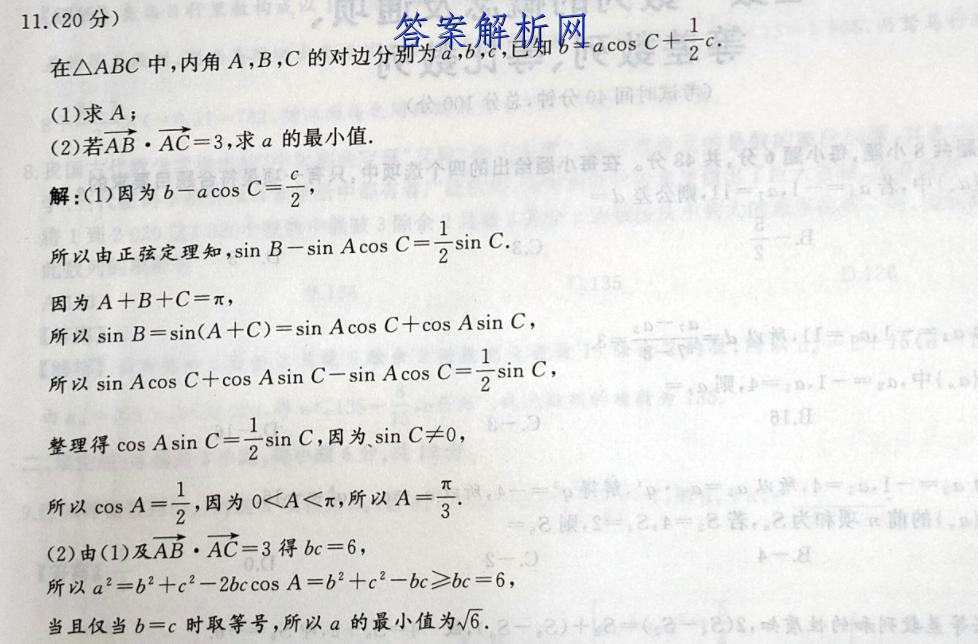 11.(20 分)
答案解析网
在△ABC 中,内角 A,B,C 的对边分别为 a,b,c,已知 b=acos C+1/2c.
(1)求 A;
(2)若AB·AC=3,求 a 的最小值.
解:(1)因为 b-acos C=c/2,
所以由正弦定理知,sin B-sin Acos C=1/2sin C.
因为 A+B+C=π,
所以 sin B=sin(A+C)=sin Acos C+cos Asin C,
所以 sin Acos C+cos Asin C-sin Acos C=1/2sin C,
整理得 cos Asin C=1/2sin C,因为 sin C≠0,
所以 cos A=1/2,因为 0<A<π,所以 A=π/3.
(2)由(1)及AB·AC=3 得 bc=6,
所以 a²=b²+c²-2bccos A=b²+c²-bc≥bc=6,
当且仅当 b=c 时取等号,所以 a 的最小值为√6.